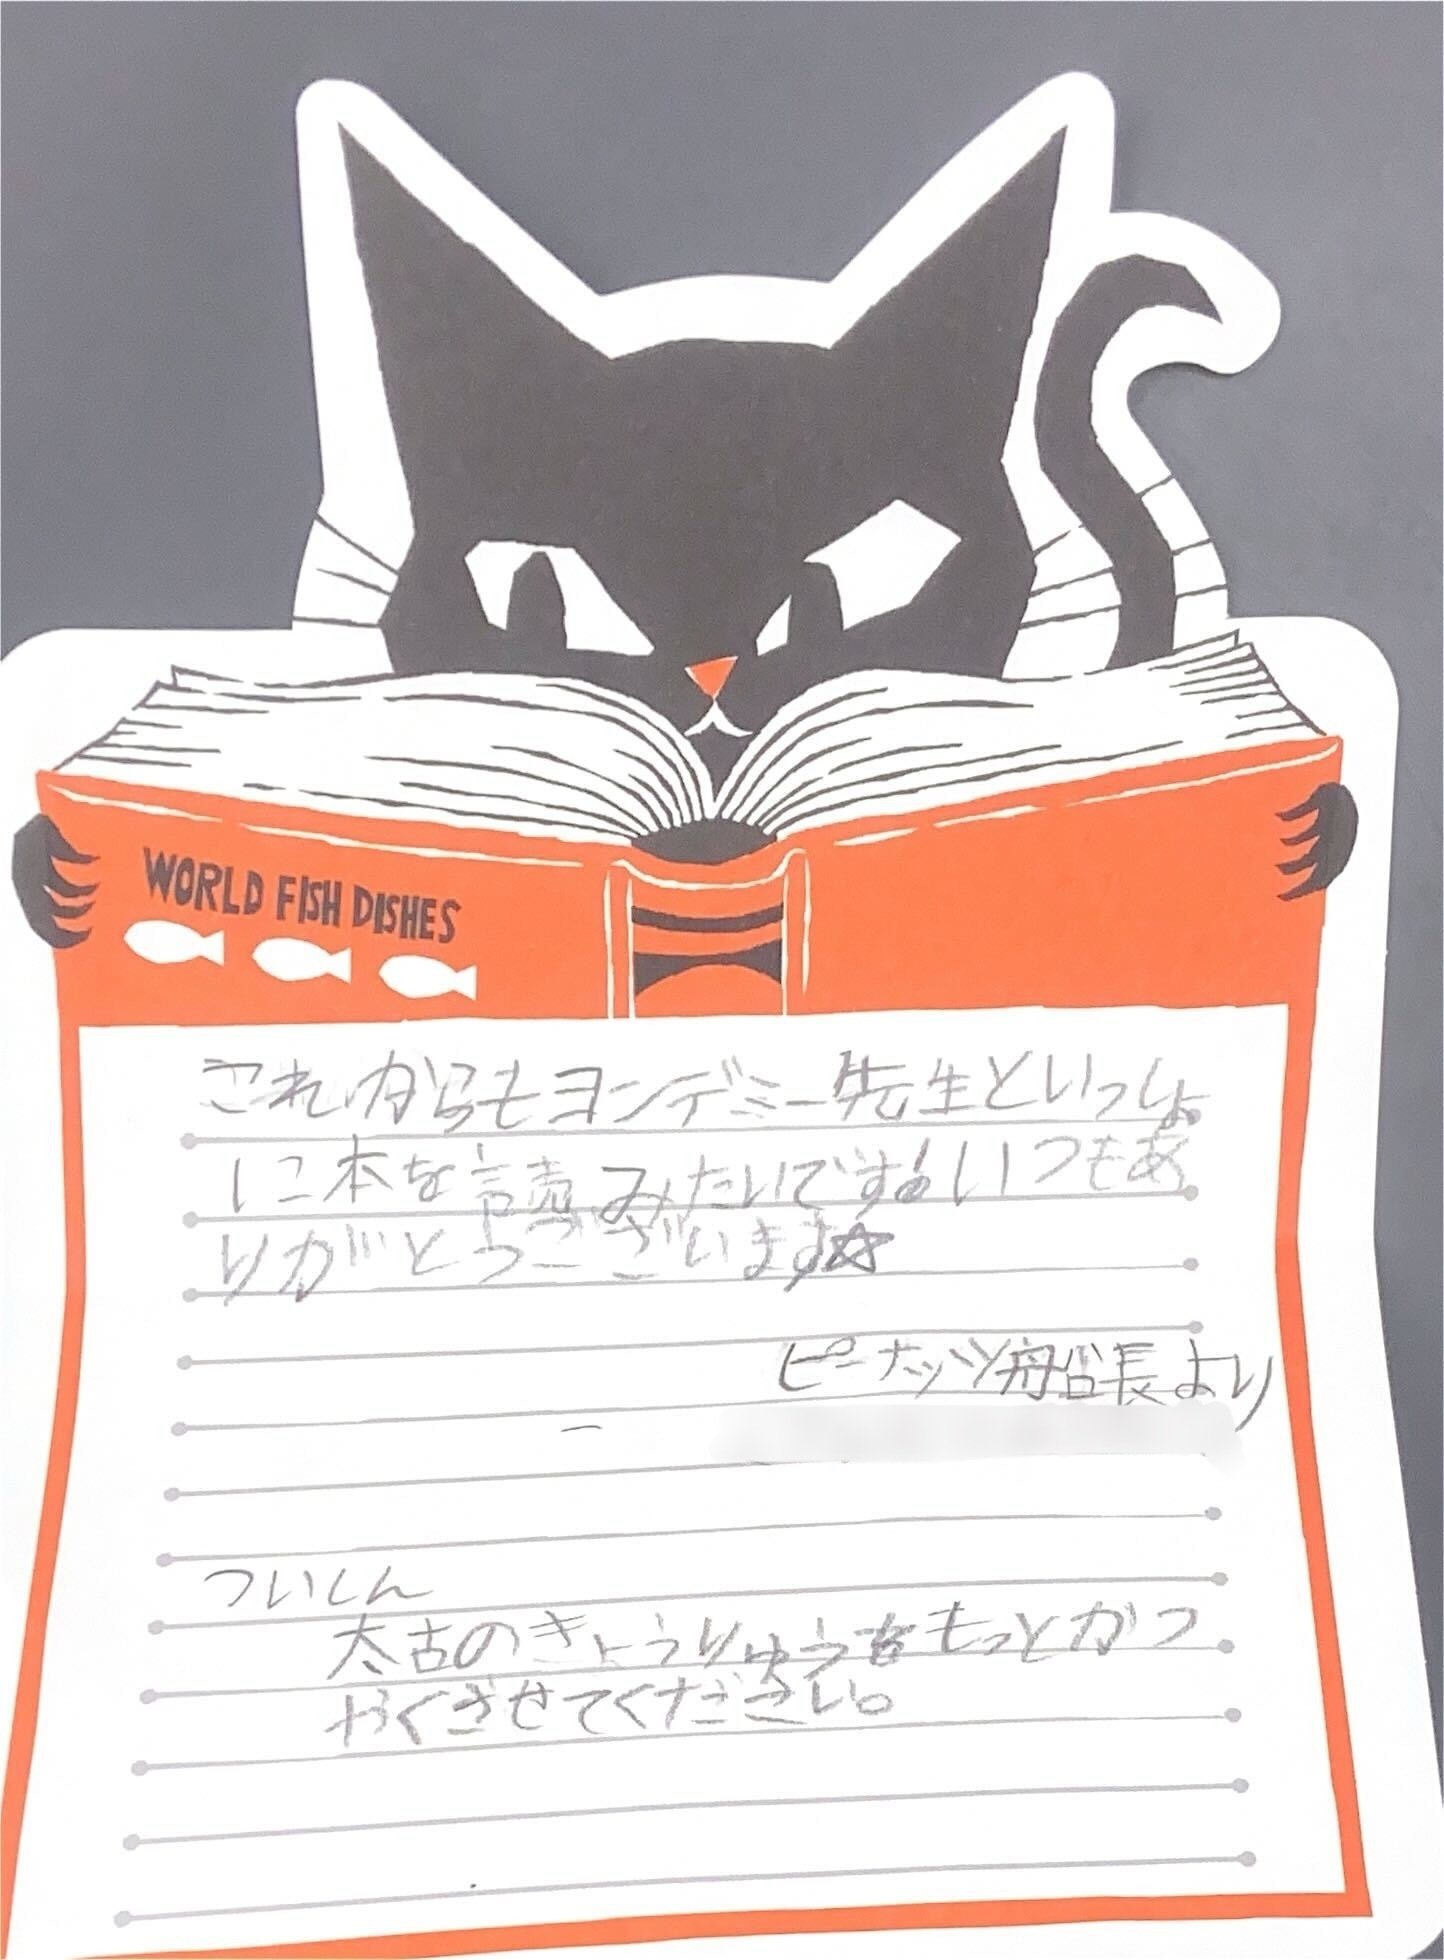 WORLD FISH DISHES
これからもヨンデミー先生といっしょ
に本を読みたいです!いつもあ
りがとうございます☆
ピーナッツ船長より
ついしん
太古のきょうりゅうをもっとかつ
やくさせてください。